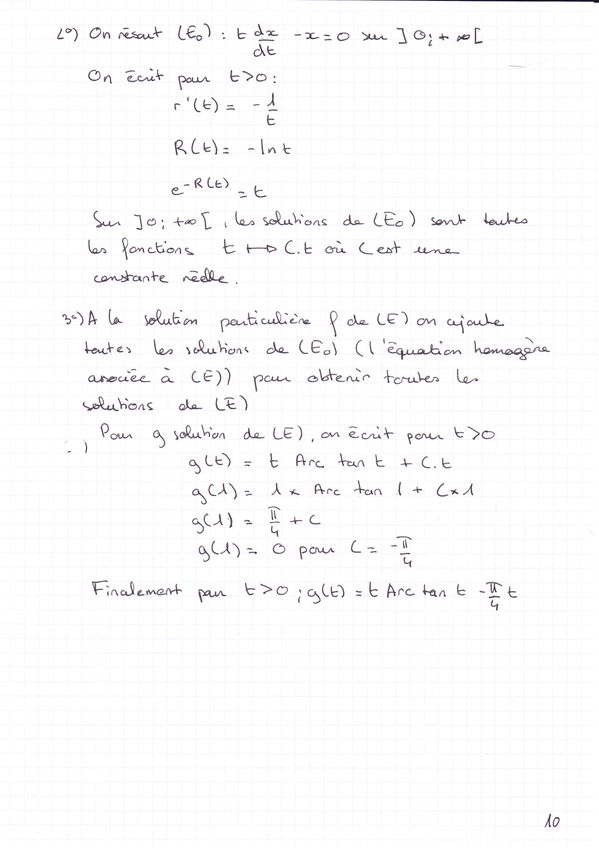 2°) On résout (E₀) : t dx/dt - x = 0 sur ]0 ; +∞[
On écrit pour t>0 :
r'(t) = - 1/t
R(t) = - ln t
e^-R(t) = t
Sur ]0 ; +∞[ , les solutions de (E₀) sont toutes
les fonctions t ↦ C.t où C est une
constante réelle.
3°) A la solution particulière f de (E) on ajoute
toutes les solutions de (E₀) (l'équation homogène
associée à (E)) pour obtenir toutes les
solutions de (E)
Pour g solution de (E), on écrit pour t>0
g(t) = t Arc tan t + C.t
g(1) = 1 × Arc tan 1 + C×1
g(1) = π/4 + C
g(1) = 0 pour C = -π/4
Finalement pour t>0 ; g(t) = t Arc tan t - π/4 t
10